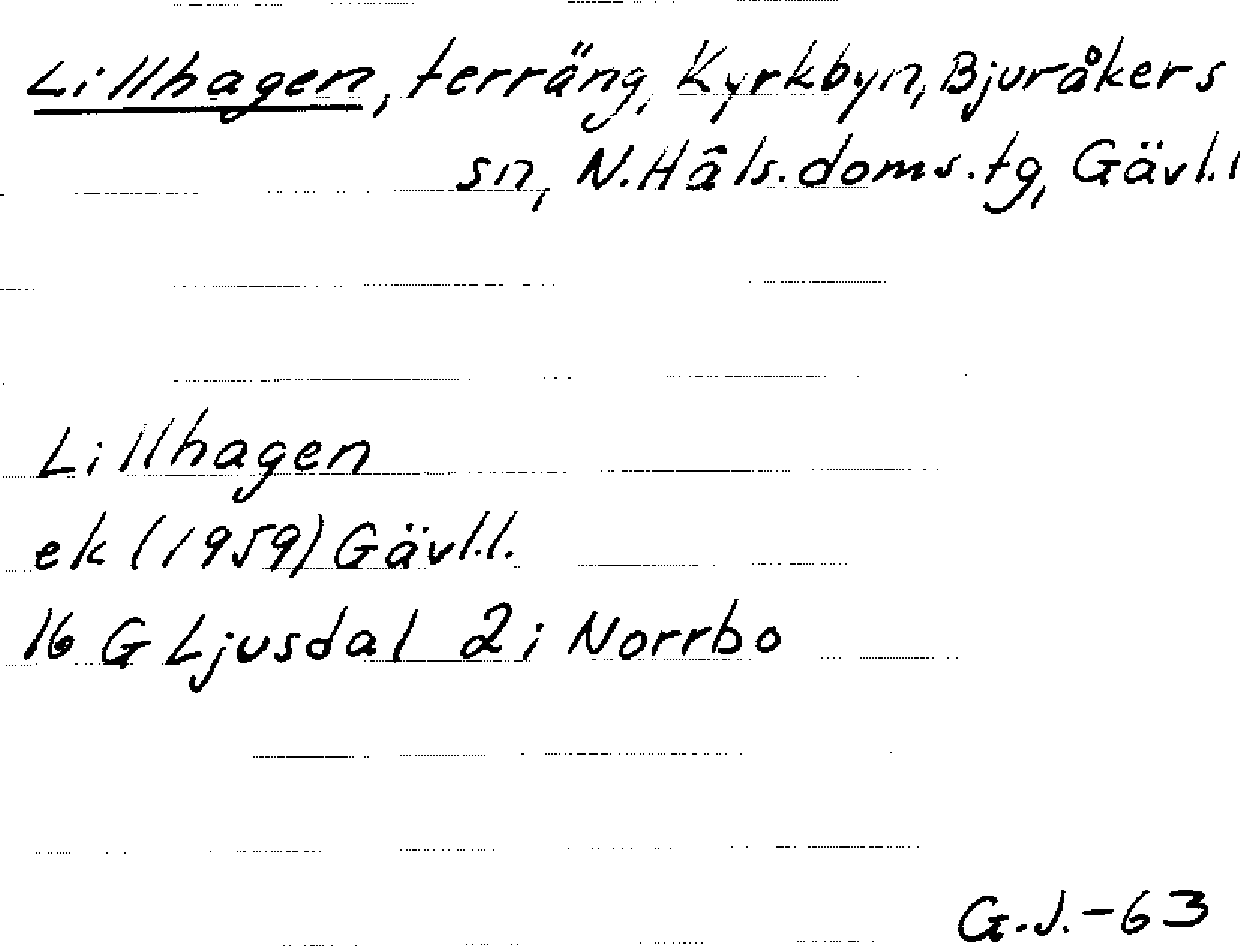 Lillhagen, terräng, Kyrkbyn, Bjuråkers
sn, N.Häls.doms.tg, Gävl.l
Lillhagen
ek (1959) Gävl.l.
16 G Ljusdal 2 i Norrbo
G.J.-63